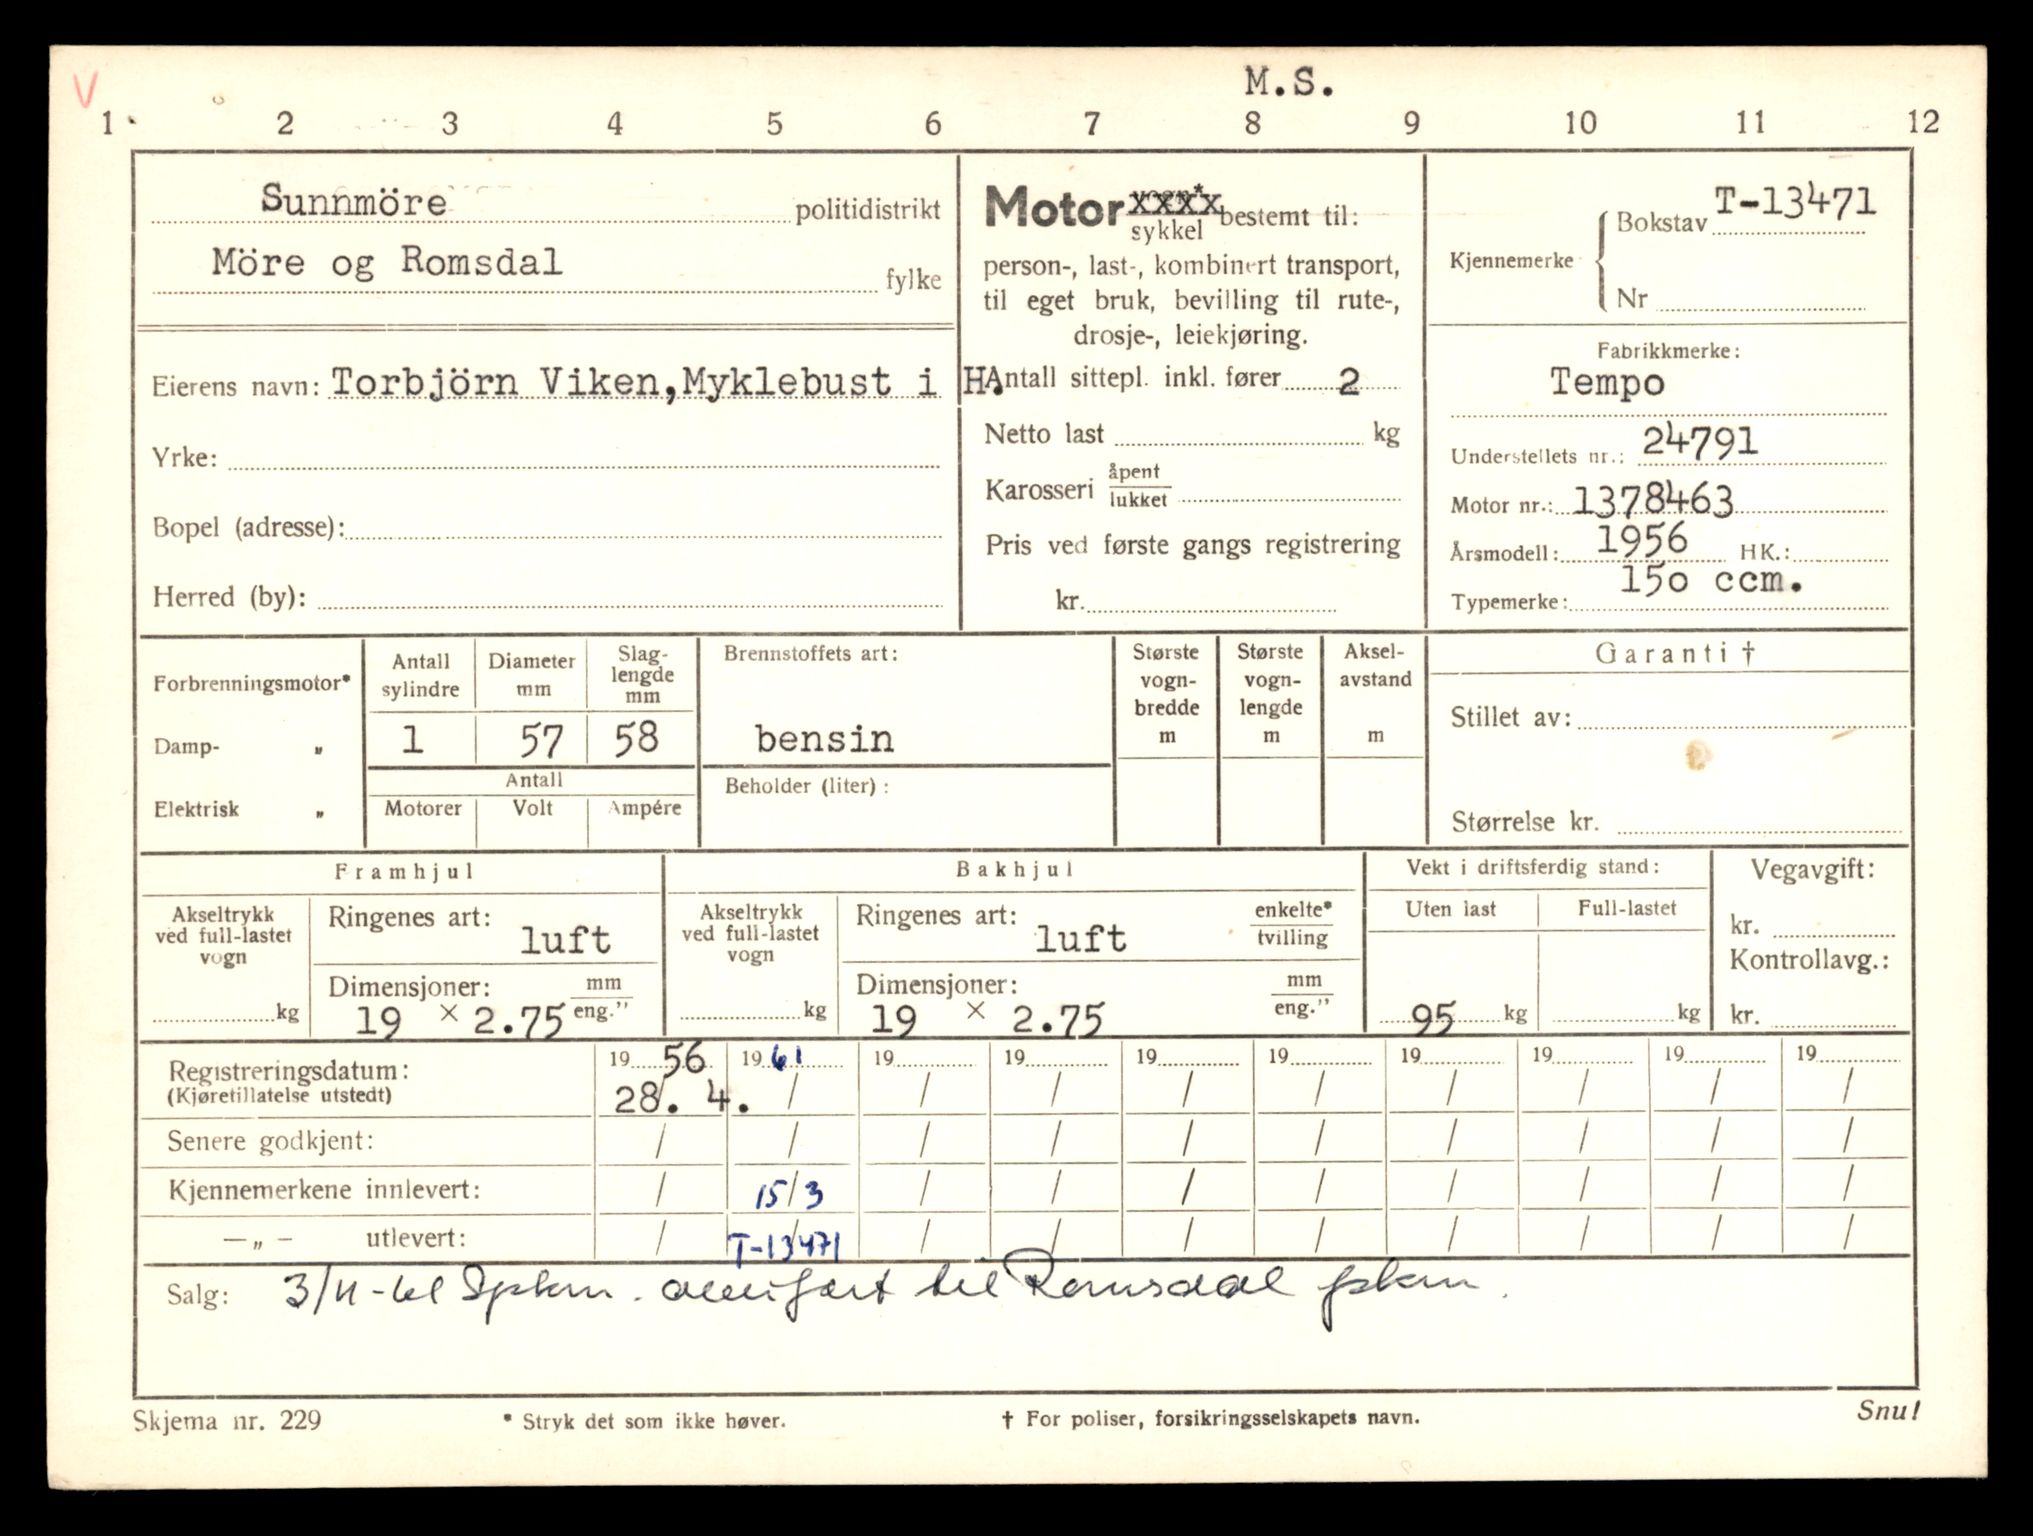 V
M.S.
1 2 3 4 5 6 7 8 9 10 11 12
Sunnmöre politidistrikt
Möre og Romsdal fylke
Eierens navn: Torbjörn Viken, Myklebust i H.
Yrke:
Bopel (adresse):
Herred (by):
Motor vogn* xxxx
sykkel bestemt til:
person-, last-, kombinert transport,
til eget bruk, bevilling til rute-,
drosje-, leiekjøring.
Antall sittepl. inkl. fører 2
Netto last kg
Karosseri åpent
lukket
Pris ved første gangs registrering
kr.
Kjennemerke
Bokstav T-13471
Nr
Fabrikkmerke:
Tempo
Understellets nr.: 24791
Motor nr.: 1378463
Årsmodell: 1956 HK.:
Typemerke: 150 ccm.
Forbrenningsmotor*
Damp- „
Elektrisk „
Antall sylindre
Diameter mm
Slag-
lengde
mm
1 57 58
Antall
Motorer Volt Ampére
Brennstoffets art:
bensin
Beholder (liter):
Største
vogn-
bredde
m
Største
vogn-
lengde
m
Aksel-
avstand
m
Garanti †
Stillet av:
Størrelse kr.
Framhjul
Akseltrykk
ved full-lastet
vogn
kg
Ringenes art:
luft
Dimensjoner: mm
19 × 2.75 eng.”
Bakhjul
Akseltrykk
ved full-lastet
vogn
kg
Ringenes art: enkelte*
luft tvilling
Dimensjoner: mm
19 × 2.75 eng.”
Vekt i driftsferdig stand:
Uten last Full-lastet
95 kg kg
Vegavgift:
kr.
Kontrollavg.:
kr.
Registreringsdatum: 19 56 19 61 19 19 19 19 19 19 19 19
(Kjøretillatelse utstedt) 28. 4. / / / / / / / / /
Senere godkjent: / / / / / / / / / /
Kjennemerkene innlevert: / 15/3 / / / / / / / /
— „ — utlevert: / T-13471 / / / / / / / /
Salg: 3/11-61 Spkm. til Romsdal pkm.
Skjema nr. 229
* Stryk det som ikke høver.
† For poliser, forsikringsselskapets navn.
Snu!